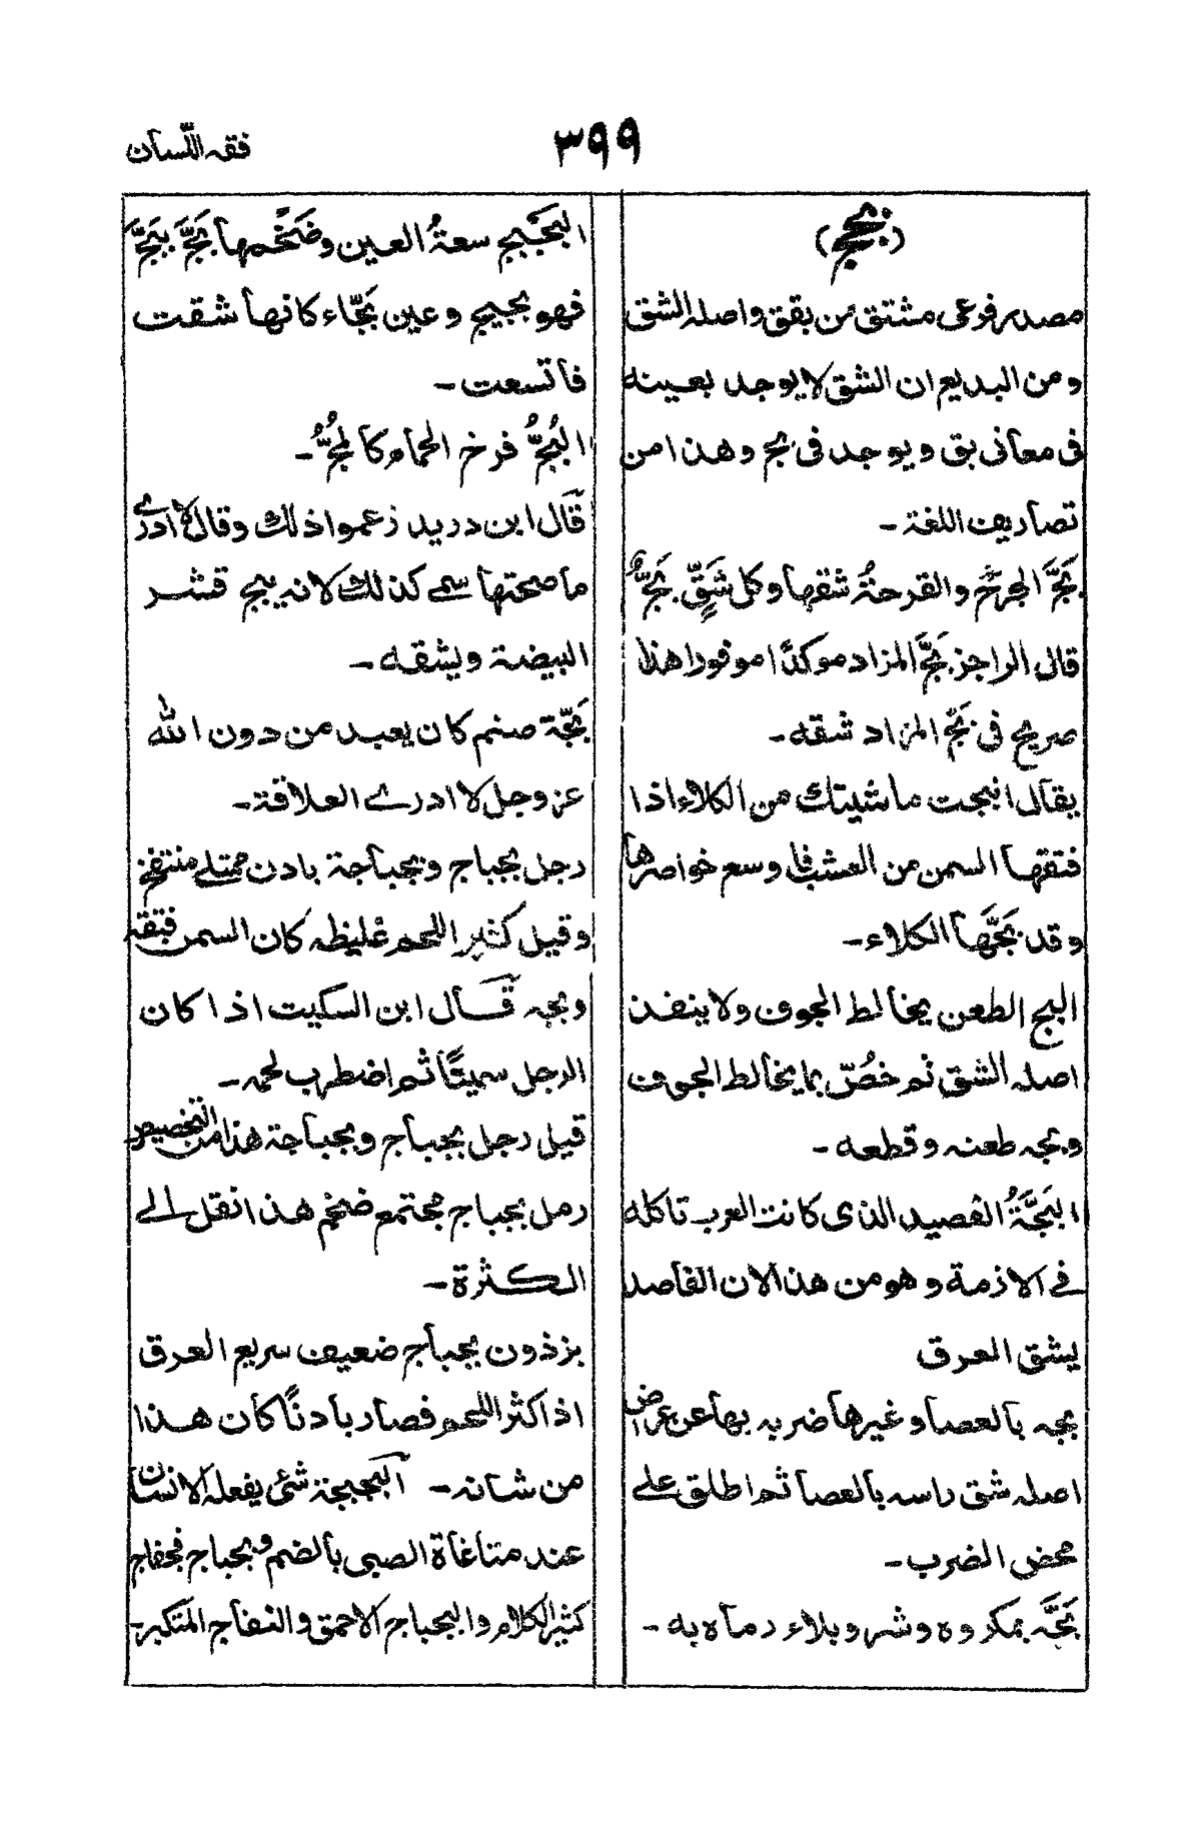 فقه اللّسان
٣٩٩
(بجج)
مصدر فرعى مشتق من بقق واصله الشق
ومن البديع ان الشق لا يوجد بعينه
فى معانى بق ويوجد فى بج وهذا من
تصاريف اللغة -
بَجَّ الجرحَ والقرحةُ شقها وكل شَقٍّ بَجٌّ
قال الراجز بَجَّ المزاد موكدًا موفورا هذا
صريح فى بَجّ المزاد شقه -
يقال انبجت ماشيتك من الكلاء اذا
فتقها السمن من العشب فاوسع خواصرها
وقد بَجَّها الكلاء -
البج الطعن يخالط الجوف ولا ينفذ
اصله الشق ثم خصّ بما يخالط الجوف
وبجه طعنه وقطعه -
البَجَّةُ الفصيد الذى كانت العرب تاكله
فے الازمة وهو من هذا لان الفاصد
يشق العرق
بجه بالعصا وغيرها ضربه بها عن عراض
اصله شق راسه بالعصا ثم اطلق علے
محض الضرب -
بَجَّه بمكروه وشر وبلاء رماه به -
البَجَجِج سعةُ العين وضَخْمها بَجَّ يَبَجّ
فهو بجيج وعين بَجّاء كانها شقت
فاتسعت -
البُجُّ فرخ الحمام كالمُجُّ -
قَال ابن دريد زعموا ذلك وقال لا ادرے
ما صحتها سمے كذلك لانه يبج قشر
البيضة ويشقه -
بَجّة صنم كان يعبد من دون الله
عز وجل لا ادرے العلاقة -
رجل بجباج وبجباجة بادن ممتلے منتفخ
وقيل كثير اللحم غليظه كان السمن فتقه
وبجه قَال ابن السكيت اذا كان
الرجل سمينًا ثم اضطرب لحمه -
قيل رجل بجباج وبجباجة هذا من التخصيص
رمل بجباج مجتمع ضخم هذا نقل الے
الكثرة -
برذون بجباج ضعيف سريع العرق
اذا كثر اللحم فصار بادنًا كان هذا
من شانه - البجبجة شئ يفعله الانسان
عند مناغاة الصبى بالضم وبجباج فجفاج
كثير الكلام والبجباج الاحمق والنفاج المتكبر -